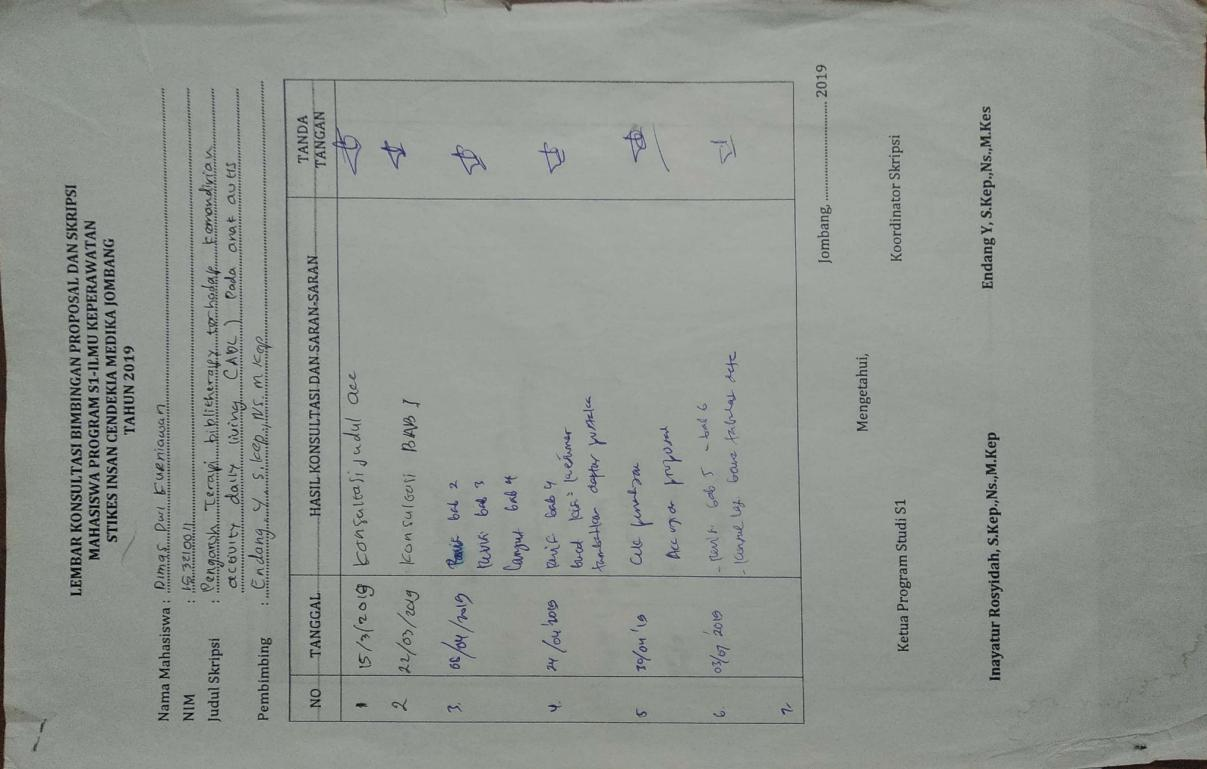 LEMBAR KONSULTASI BIMBINGAN PROPOSAL DAN SKRIPSI
MAHASISWA PROGRAM S1-ILMU KEPERAWATAN
STIKES INSAN CENDEKIA MEDIKA JOMBANG
TAHUN 2019
Nama Mahasiswa : Dimas Dwi Kurniawan
NIM : 153210011
Judul Skripsi : Pengaruh Terapi biblitherapy terhadap kemandirian
activity daily living (ADL) Pada anak autis
Pembimbing : Endang Y, S.Kep.,Ns. M.Kep
NO TANGGAL HASIL KONSULTASI DAN SARAN-SARAN TANDA TANGAN
1 15/3/2019 konsultasi judul acc
2 22/03/2019 konsultasi BAB I
3. 08/04/2019 bab 2
Revisi bab 3
Lanjut bab 4
4. 24/04 2019 Revisi bab 4
buat kisi2 kuesioner
tambahkan daftar pustaka
5 29/04 '19 Cek penulisan
Acc ujian proposal
6. 03/07 2019 - Revisi bab 5 - bab 6
- tabulasi data
7.
Jombang, .......................... 2019
Mengetahui,
Ketua Program Studi S1 Koordinator Skripsi
Inayatur Rosyidah, S.Kep.,Ns.,M.Kep Endang Y, S.Kep.,Ns.,M.Kes